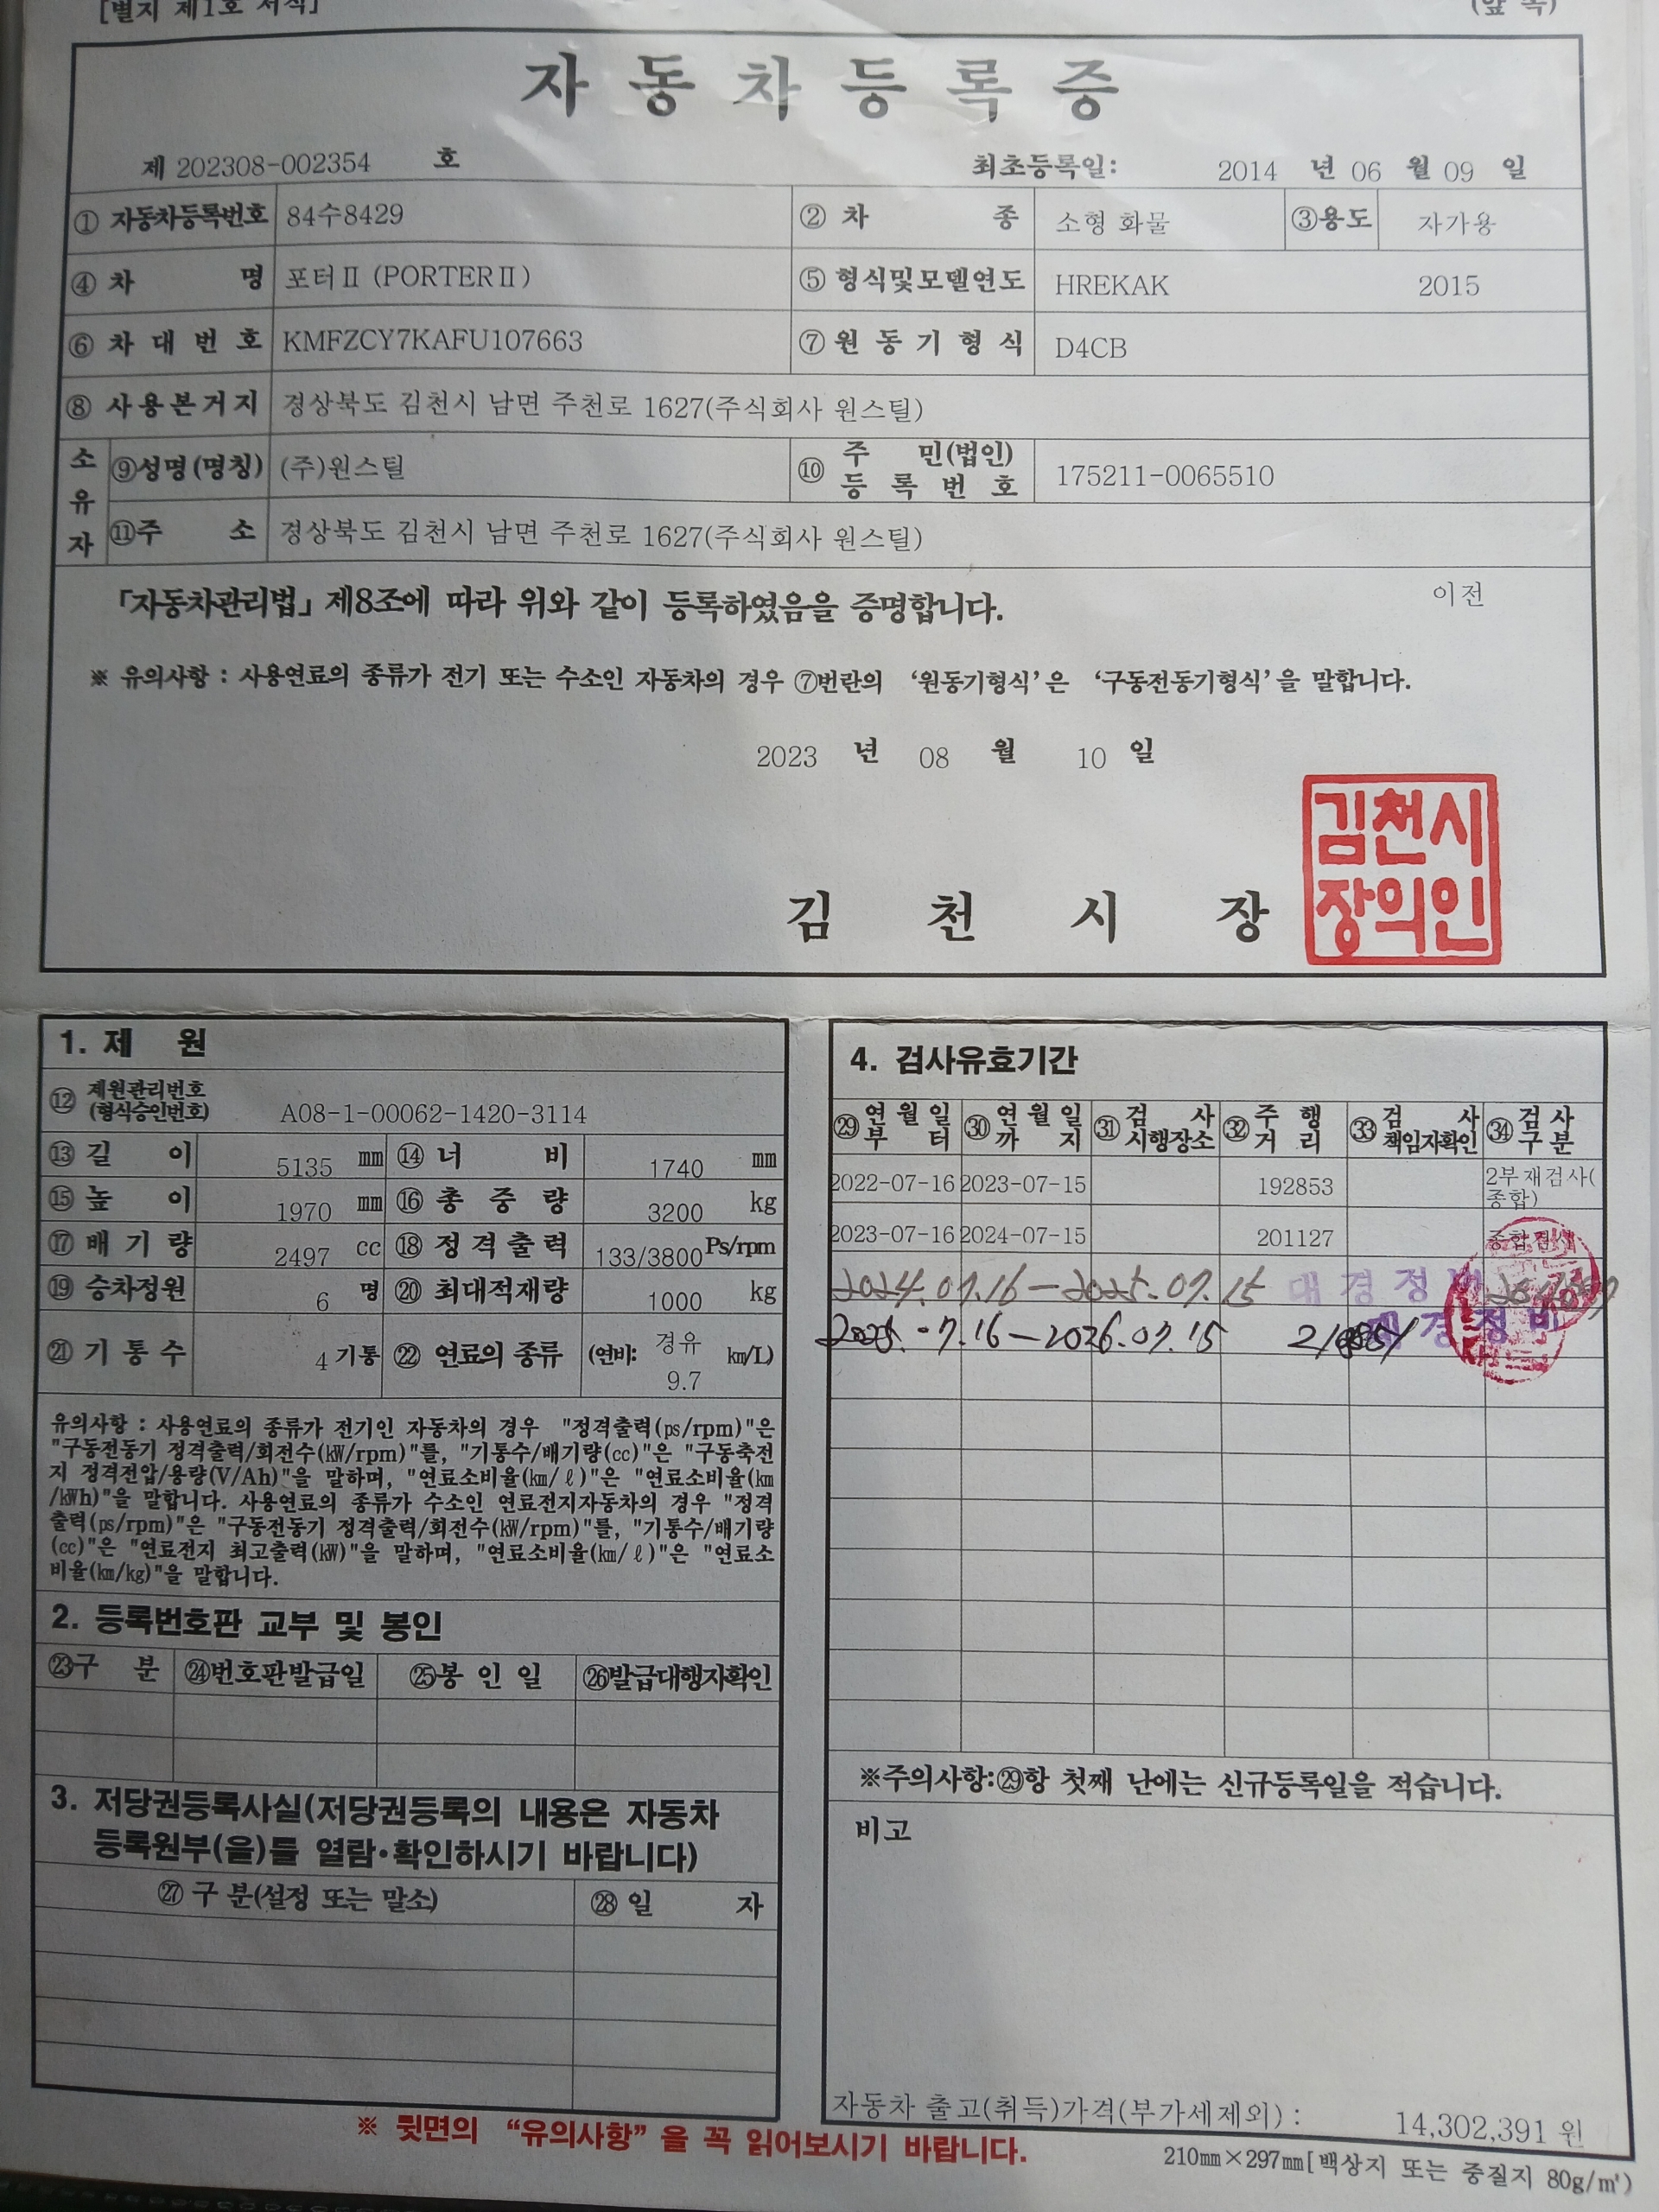 [별지 제1호 서식]
(앞 쪽)
자동차등록증
제 202308-002354 호
최초등록일: 2014 년 06 월 09 일
① 자동차등록번호 84수8429 ② 차 종 소형 화물 ③용도 자가용
④ 차 명 포터Ⅱ (PORTERⅡ) ⑤ 형식및모델연도 HREKAK 2015
⑥ 차 대 번 호 KMFZCY7KAFU107663 ⑦ 원 동 기 형 식 D4CB
⑧ 사 용 본 거 지 경상북도 김천시 남면 주천로 1627(주식회사 원스틸)
소유자
⑨성명(명칭) (주)원스틸 ⑩ 주 민(법인) 등 록 번 호 175211-0065510
⑪주 소 경상북도 김천시 남면 주천로 1627(주식회사 원스틸)
「자동차관리법」제8조에 따라 위와 같이 등록하였음을 증명합니다.
이전
※ 유의사항 : 사용연료의 종류가 전기 또는 수소인 자동차의 경우 ⑦번란의 ‘원동기형식’은 ‘구동전동기형식’을 말합니다.
2023 년 08 월 10 일
김 천 시 장
김천시
장의인
1. 제 원
⑫ 제원관리번호
(형식승인번호) A08-1-00062-1420-3114
⑬ 길 이 5135 mm ⑭ 너 비 1740 mm
⑮ 높 이 1970 mm ⑯ 총 중 량 3200 kg
⑰ 배 기 량 2497 cc ⑱ 정 격 출 력 133/3800 Ps/rpm
⑲ 승차정원 6 명 ⑳ 최대적재량 1000 kg
㉑ 기 통 수 4 기통 ㉒ 연료의 종류 경유 (연비: 9.7 km/L)
유의사항 : 사용연료의 종류가 전기인 자동차의 경우 "정격출력(ps/rpm)"은
"구동전동기 정격출력/회전수(kW/rpm)"를, "기통수/배기량(cc)"은 "구동축전
지 정격전압/용량(V/Ah)"을 말하며, "연료소비율(km/ℓ)"은 "연료소비율(km
/kWh)"을 말합니다. 사용연료의 종류가 수소인 연료전지자동차의 경우 "정격
출력(ps/rpm)"은 "구동전동기 정격출력/회전수(kW/rpm)"를, "기통수/배기량
(cc)"은 "연료전지 최고출력(kW)"을 말하며, "연료소비율(km/ℓ)"은 "연료소
비율(km/kg)"을 말합니다.
2. 등록번호판 교부 및 봉인
㉓구 분 ㉔번호판발급일 ㉕봉 인 일 ㉖발급대행자확인
3. 저당권등록사실(저당권등록의 내용은 자동차
등록원부(을)를 열람·확인하시기 바랍니다)
㉗ 구 분(설정 또는 말소) ㉘ 일 자
4. 검사유효기간
㉙ 연 월 일 부 터 ㉚ 연 월 일 까 지 ㉛ 검 사 시행장소 ㉜ 주 행 거 리 ㉝ 검 사 책임자확인 ㉞ 검 사 구 분
2022-07-16 2023-07-15 192853 2부재검사(종합)
2023-07-16 2024-07-15 201127 종합검사
2024.07.16 - 2025.07.15 대경정비
2025.07.16 - 2026.07.15 대경정비
※주의사항:㉙항 첫째 난에는 신규등록일을 적습니다.
비고
자동차 출고(취득)가격(부가세제외) : 14,302,391 원
※ 뒷면의 “유의사항”을 꼭 읽어보시기 바랍니다.
210mm×297mm[백상지 또는 중질지 80g/㎡]